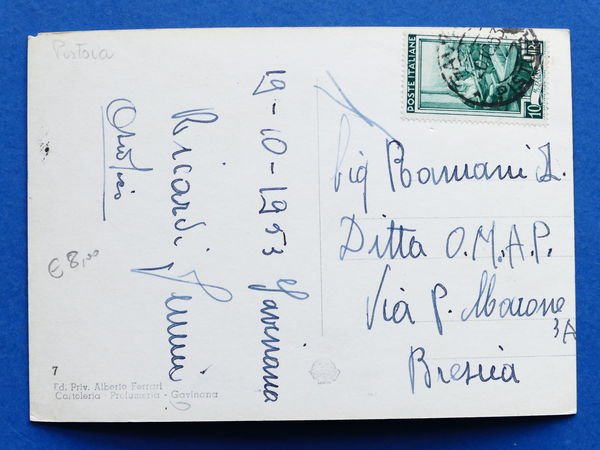 Pistoia
19-10-1953 Gavinana
Ricordi
€ 8,00
7
Ed. Priv. Alberto Ferrari
Cartoleria - Profumeria - Gavinana
POSTE ITALIANE
LIRE
10
Sig Romani L.
Ditta O.M.A.P.
Via P. Marone
3A
Brescia